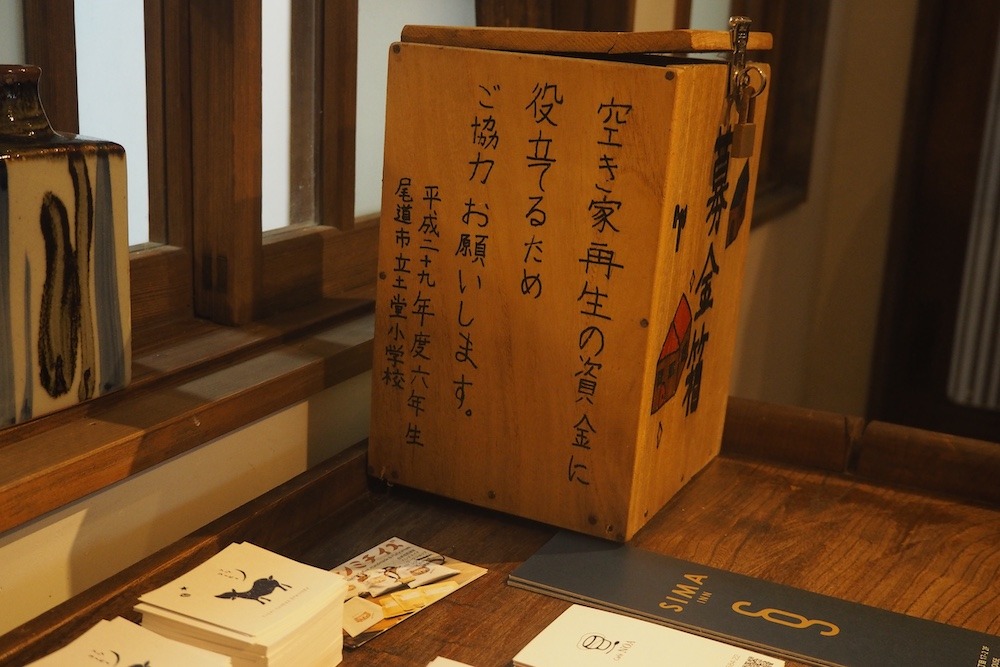 空き家再生の資金に
役立てるため
ご協力お願いします。
平成二十九年度六年生
尾道市立土堂小学校
募金箱
SIMA
INN